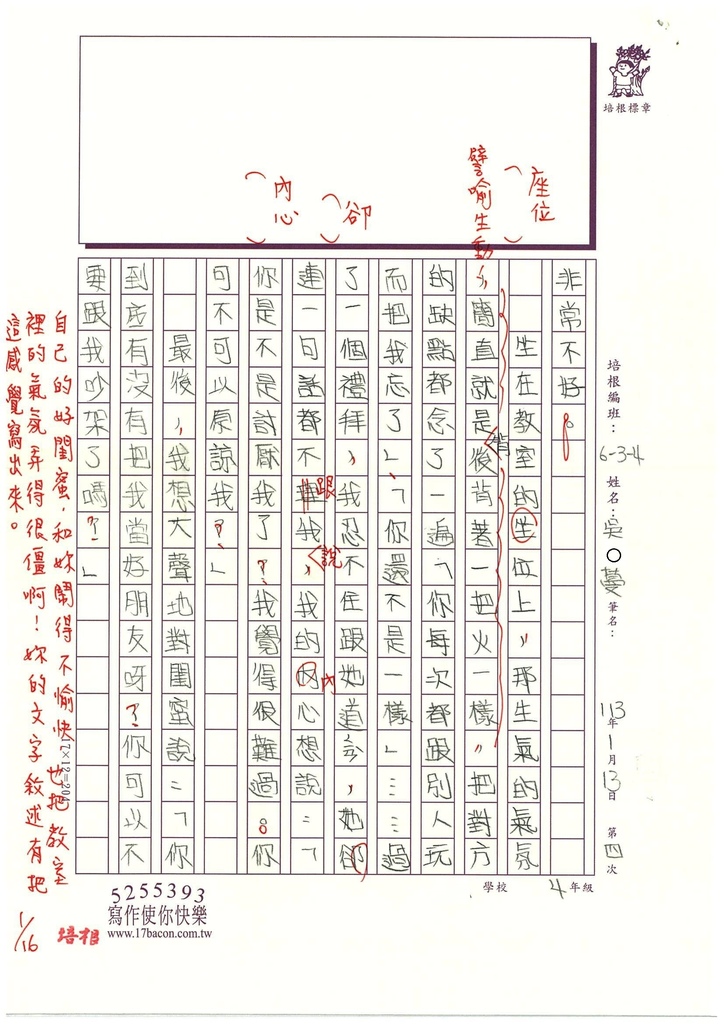 培根標章
座位
譬喻生動
卻
內心
非常不好。
坐在教室的坐位上，那生氣的氣氛
簡直就是後背著一把火一樣，把對方
背
的缺點都念了一遍「你每次都跟別人玩
而把我忘了」、「你還不是一樣」……過
了一個禮拜，我忍不住跟她道歉，她卻
連一句話都不跟我說，我的內心想說：「
你是不是討厭我了？我覺得很難過。你
可不可以原諒我？」
最後，我想大聲地對閨蜜說：「你
到底有沒有把我當好朋友呀？你可以不
要跟我吵架了嗎？」
自己的好閨蜜，和妳鬧得不愉快，也把教室
裡的氣氛弄得很僵啊！妳的文字敘述有把
這感覺寫出來。
1/16
培根
17×12=204
培根編班：6-3-4 姓名：吳○蔓 筆名： 113年1月13日 第四次
學校 4年級
5255393
寫作使你快樂
www.17bacon.com.tw